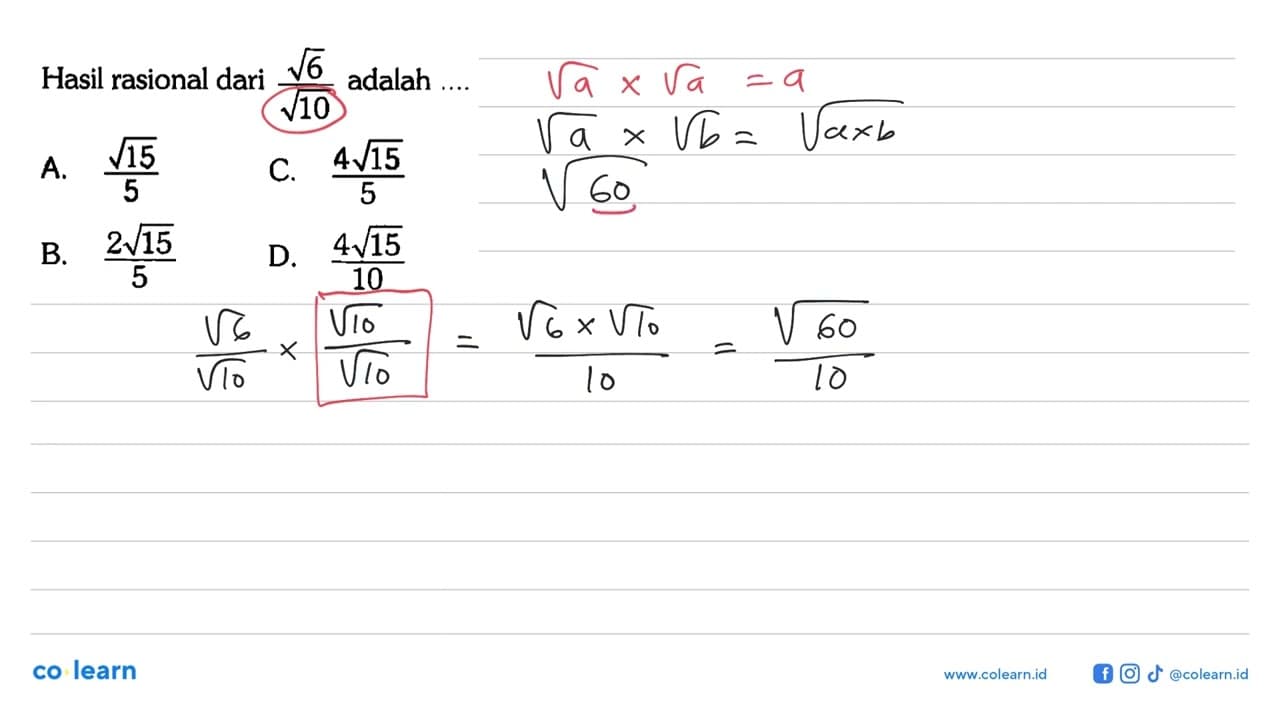 Hasil rasional dari √6/√10 adalah ....
A. √15/5 C. 4√15/5
B. 2√15/5 D. 4√15/10
√a × √a = a
√a × √b = √a×b
√60
√6/√10 × √10/√10 = √6 × √10/10 = √60/10
co learn
www.colearn.id @colearn.id